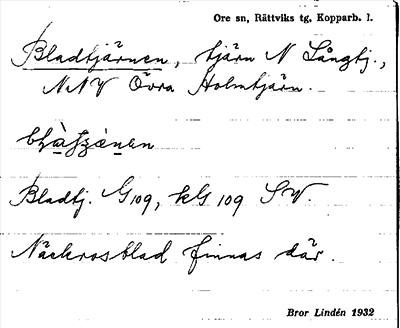 Ore sn, Rättviks tg, Kopparb. l.
Bladtjärnen, tjärn N Långtj.,
NNV Övra Holmtjärn.
Bladtj. G109, kG 109 SV.
Näckrosblad finnas där.
Bror Lindén 1932